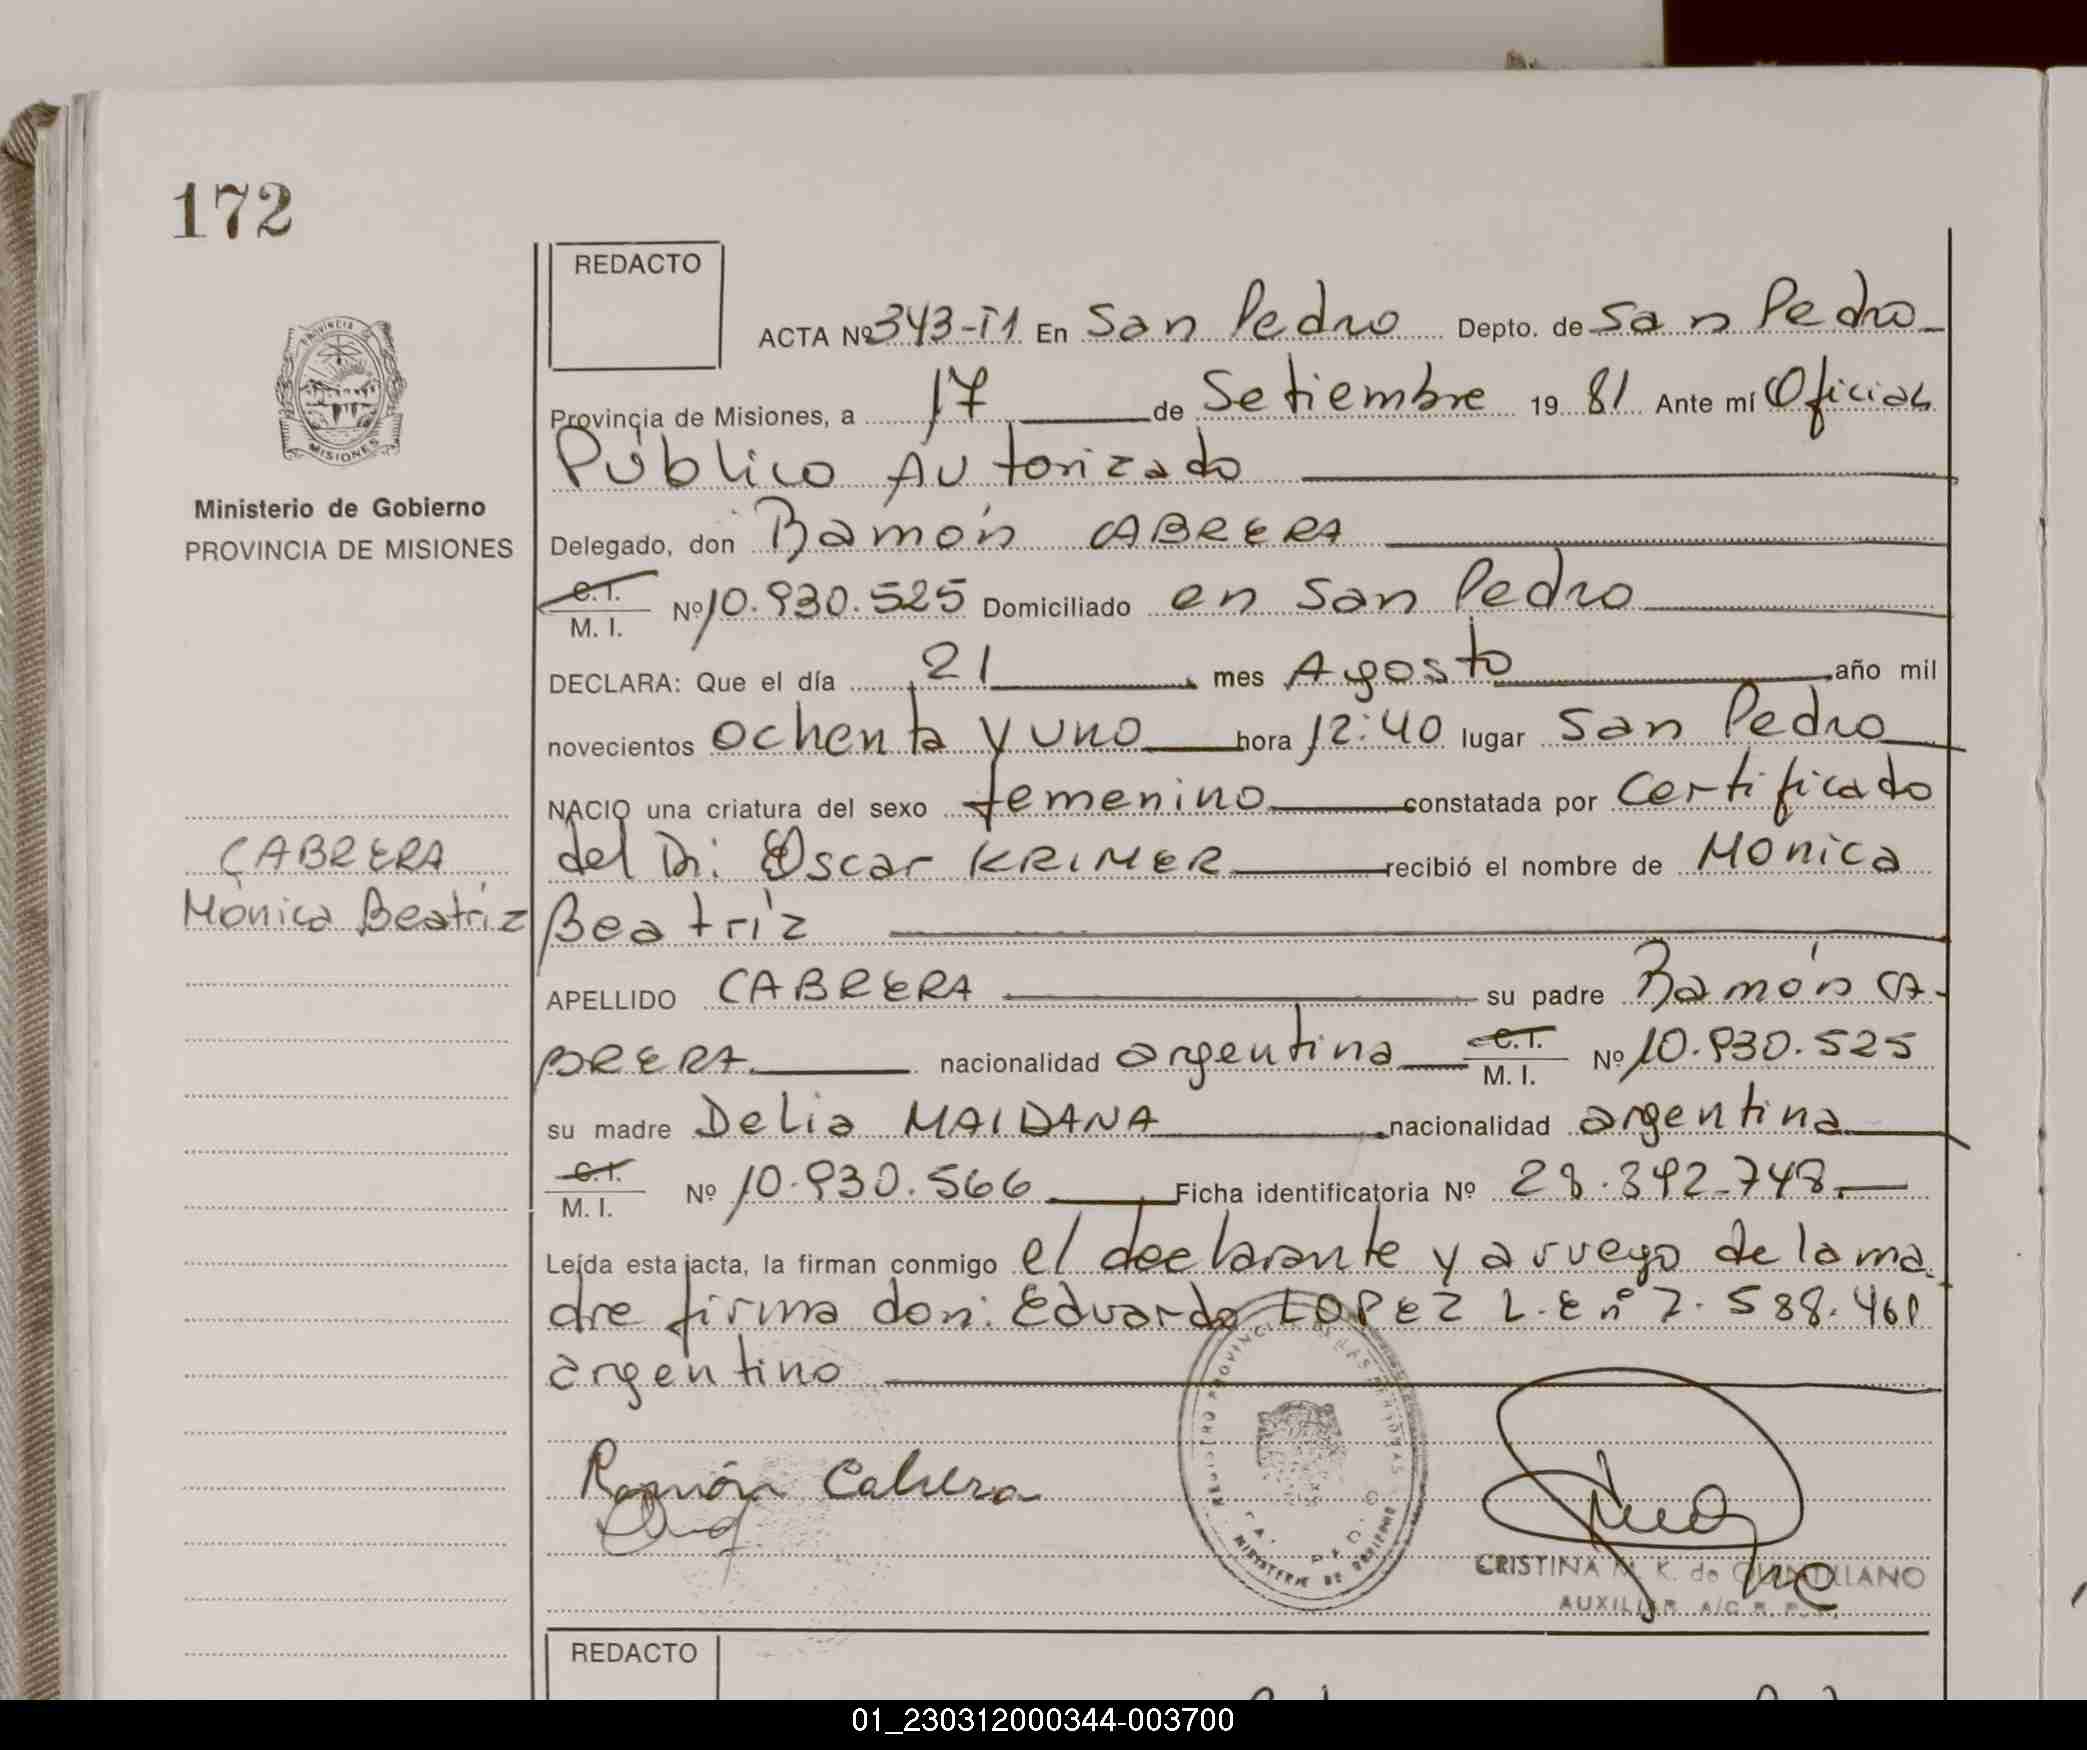 172
REDACTO
ACTA Nº 343-T1 En San Pedro Depto. de San Pedro
Provincia de Misiones, a 17 de Setiembre 19 81 Ante mí Oficial
Público Autorizado
Ministerio de Gobierno
PROVINCIA DE MISIONES
Delegado, don Ramón CABRERA
C.I.
M. I. Nº 10.930.525 Domiciliado en San Pedro
DECLARA: Que el día 21 mes Agosto año mil
novecientos ochenta y uno hora 12:40 lugar San Pedro
NACIO una criatura del sexo femenino constatada por Certificado
CABRERA
del Dr. Oscar KRIMER recibió el nombre de Mónica
Mónica Beatríz
Beatríz
APELLIDO CABRERA su padre Ramón CA-
BRERA nacionalidad argentina C.I. M. I. Nº 10.930.525
su madre Delia MAIDANA nacionalidad argentina
C.I.
M. I. Nº 10.930.566 Ficha identificatoria Nº 28.392.748
Leída esta acta, la firman conmigo el declarante y a ruego de la ma-
dre firma don: Eduardo LOPEZ L.E nº 7.588.461
argentino
Ramón Cabrera
PROVINCIA MISIONES
MINISTERIO DE GOBIERNO
CRISTINA M. K. de
AUXILIAR A/C R. P.
REDACTO
01_230312000344-003700